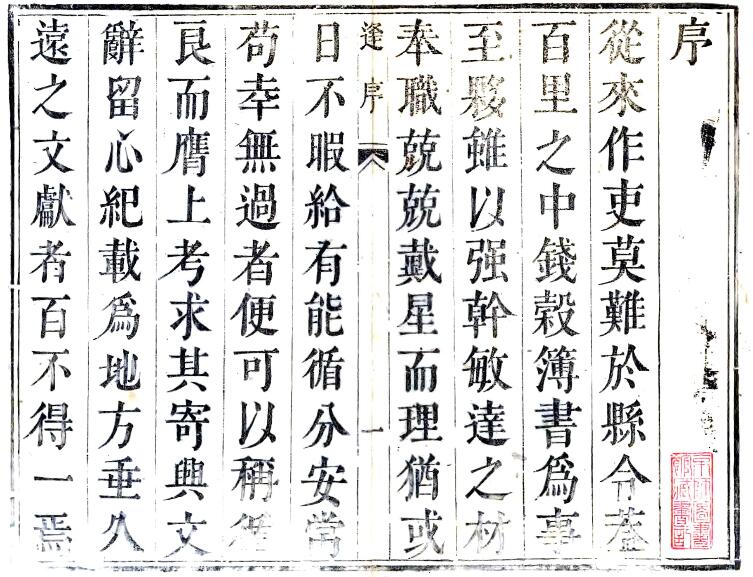 序
從來作吏莫難於縣令葢
百里之中錢穀簿書爲事
至夥雖以强幹敏達之材
奉職兢兢戴星而理猶或
逢序 一
日不暇給有能循分安常
苟幸無過者便可以稱循
良而膺上考求其寄興文
辭留心紀載爲地方垂久
遠之文獻者百不得一焉